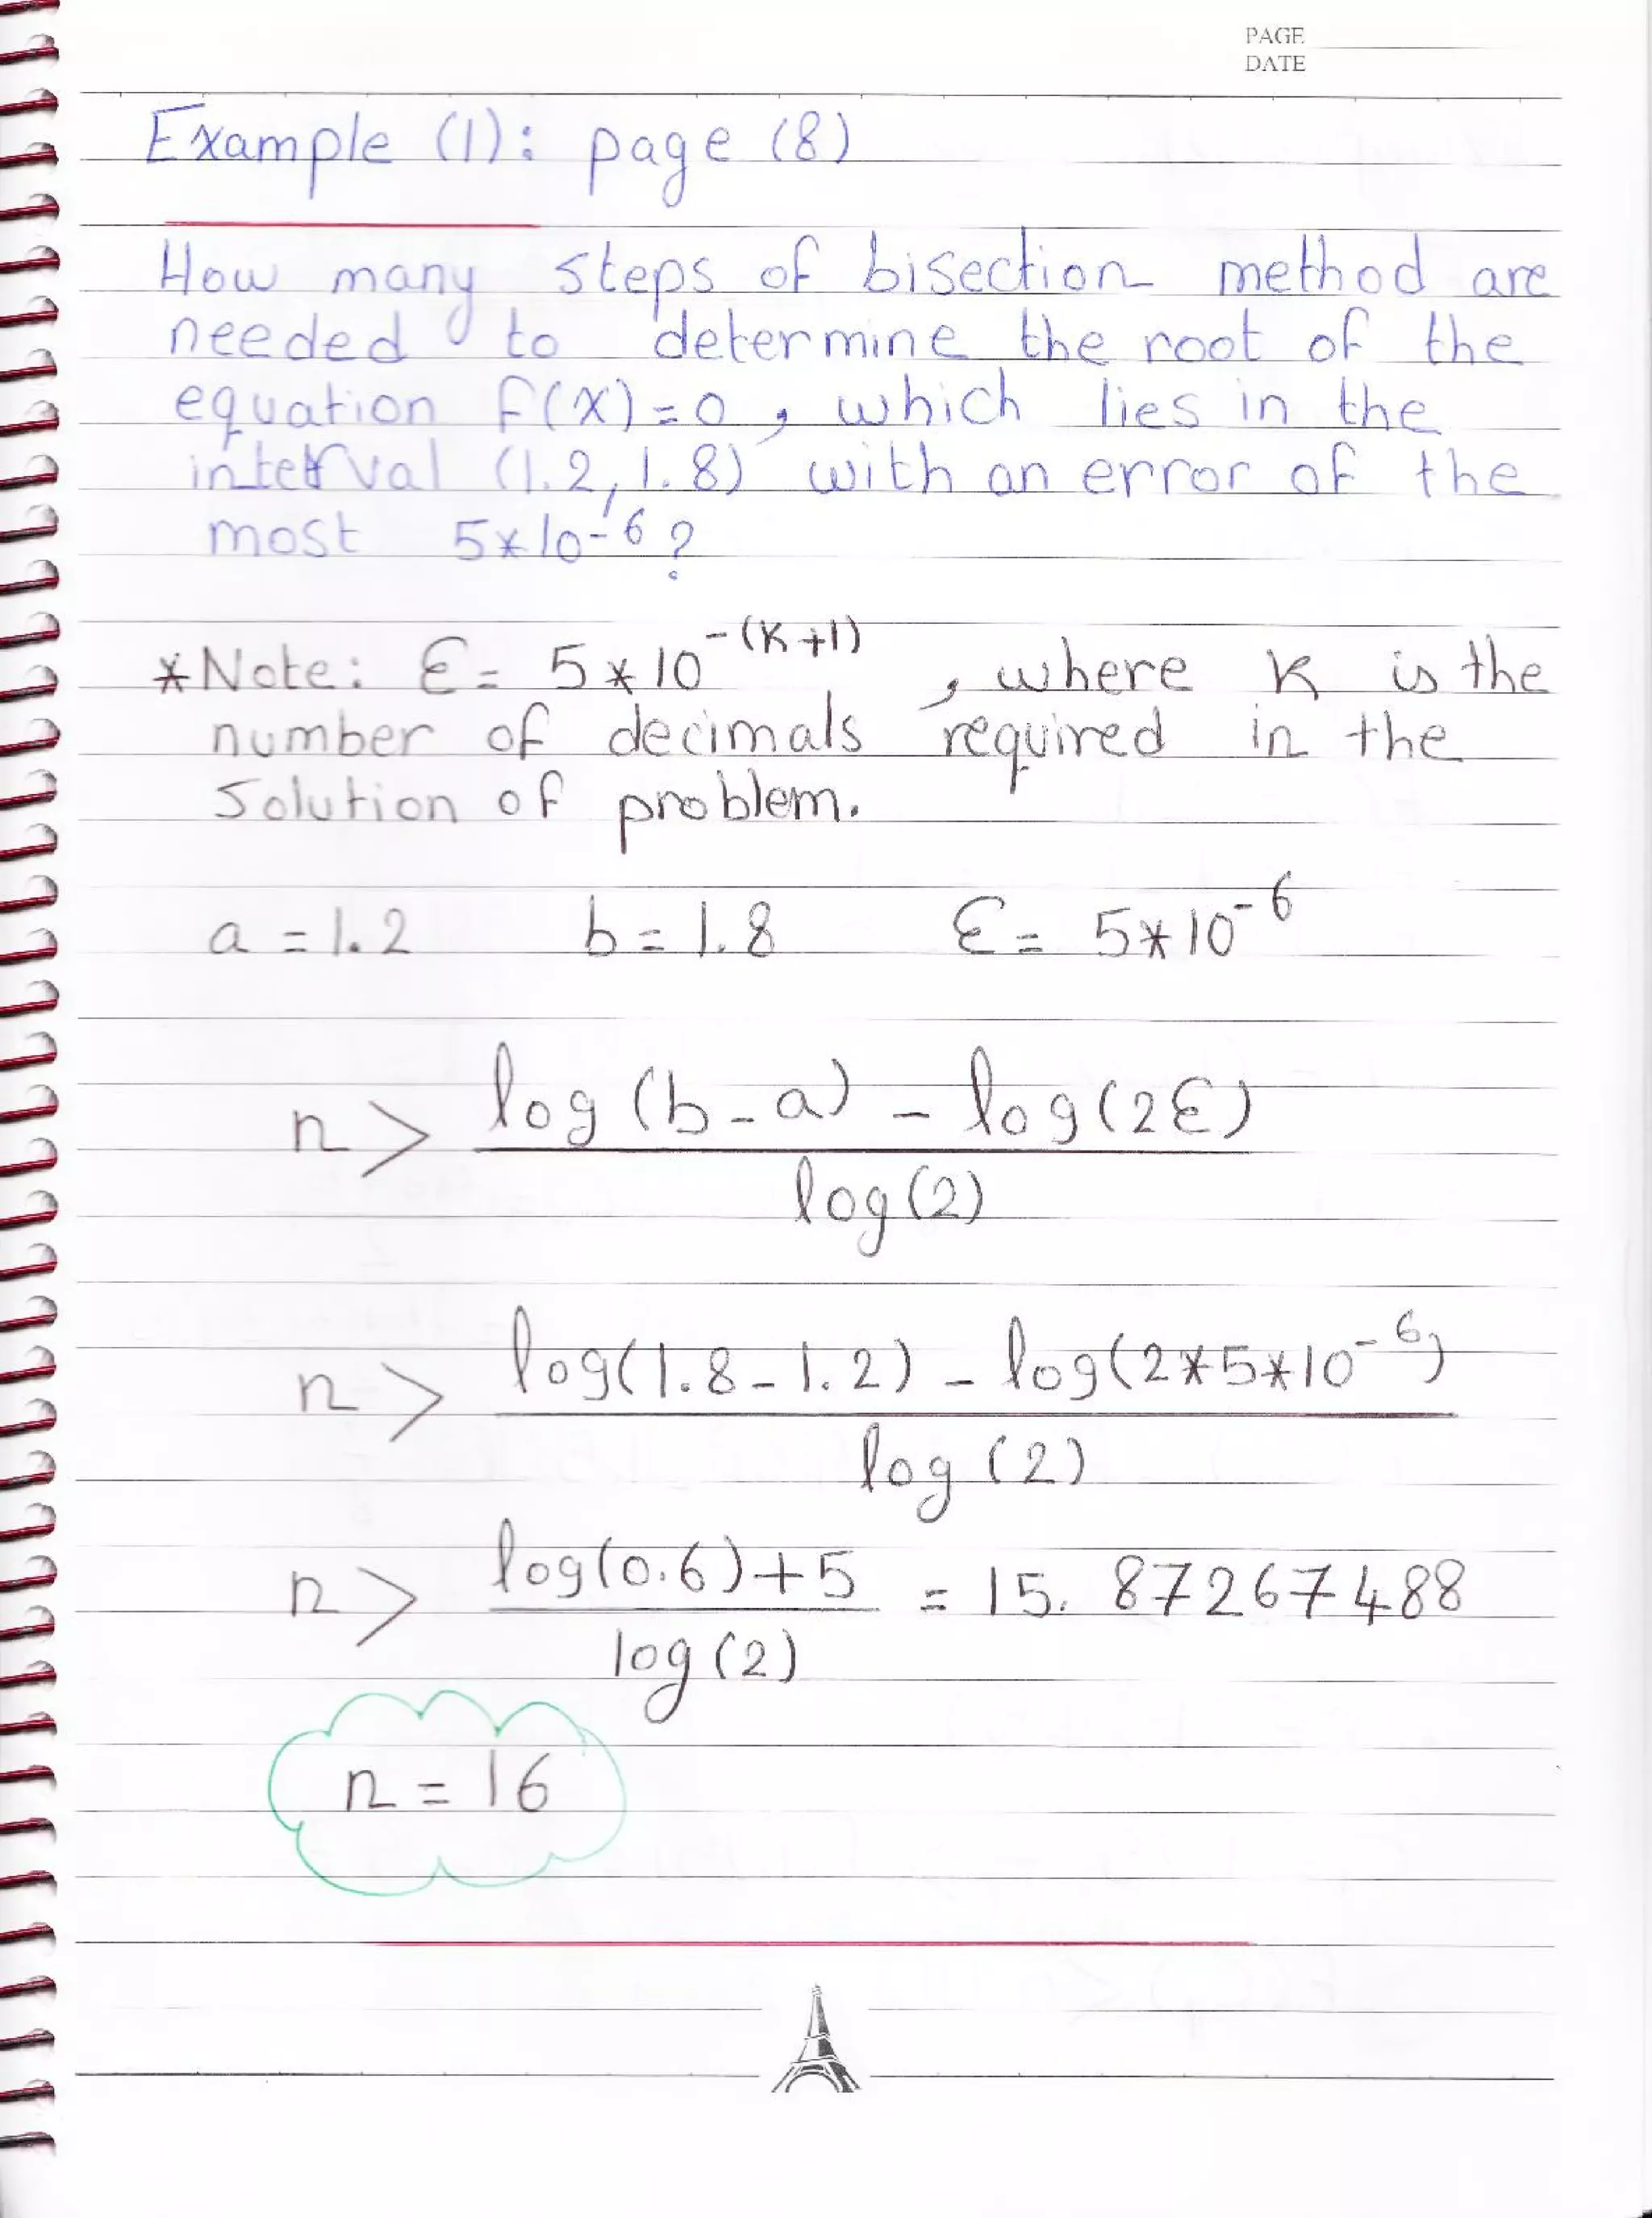 PAGE
DATE
Example (1): page (8)
How many steps of bisection method are
needed to determine the root of the
equation f(x)=0, which lies in the
interval (1.2, 1.8) with an error of the
most 5*10^-6?
*Note: Ɛ = 5*10^-(K+1), where K is the
number of decimals required in the
Solution of problem.
a = 1.2 b = 1.8 Ɛ = 5*10^-6
n > (log(b-a) - log(2Ɛ)) / log(2)
n > (log(1.8-1.2) - log(2*5*10^-6)) / log(2)
n > (log(0.6)+5) / log(2) = 15.87267488
n = 16